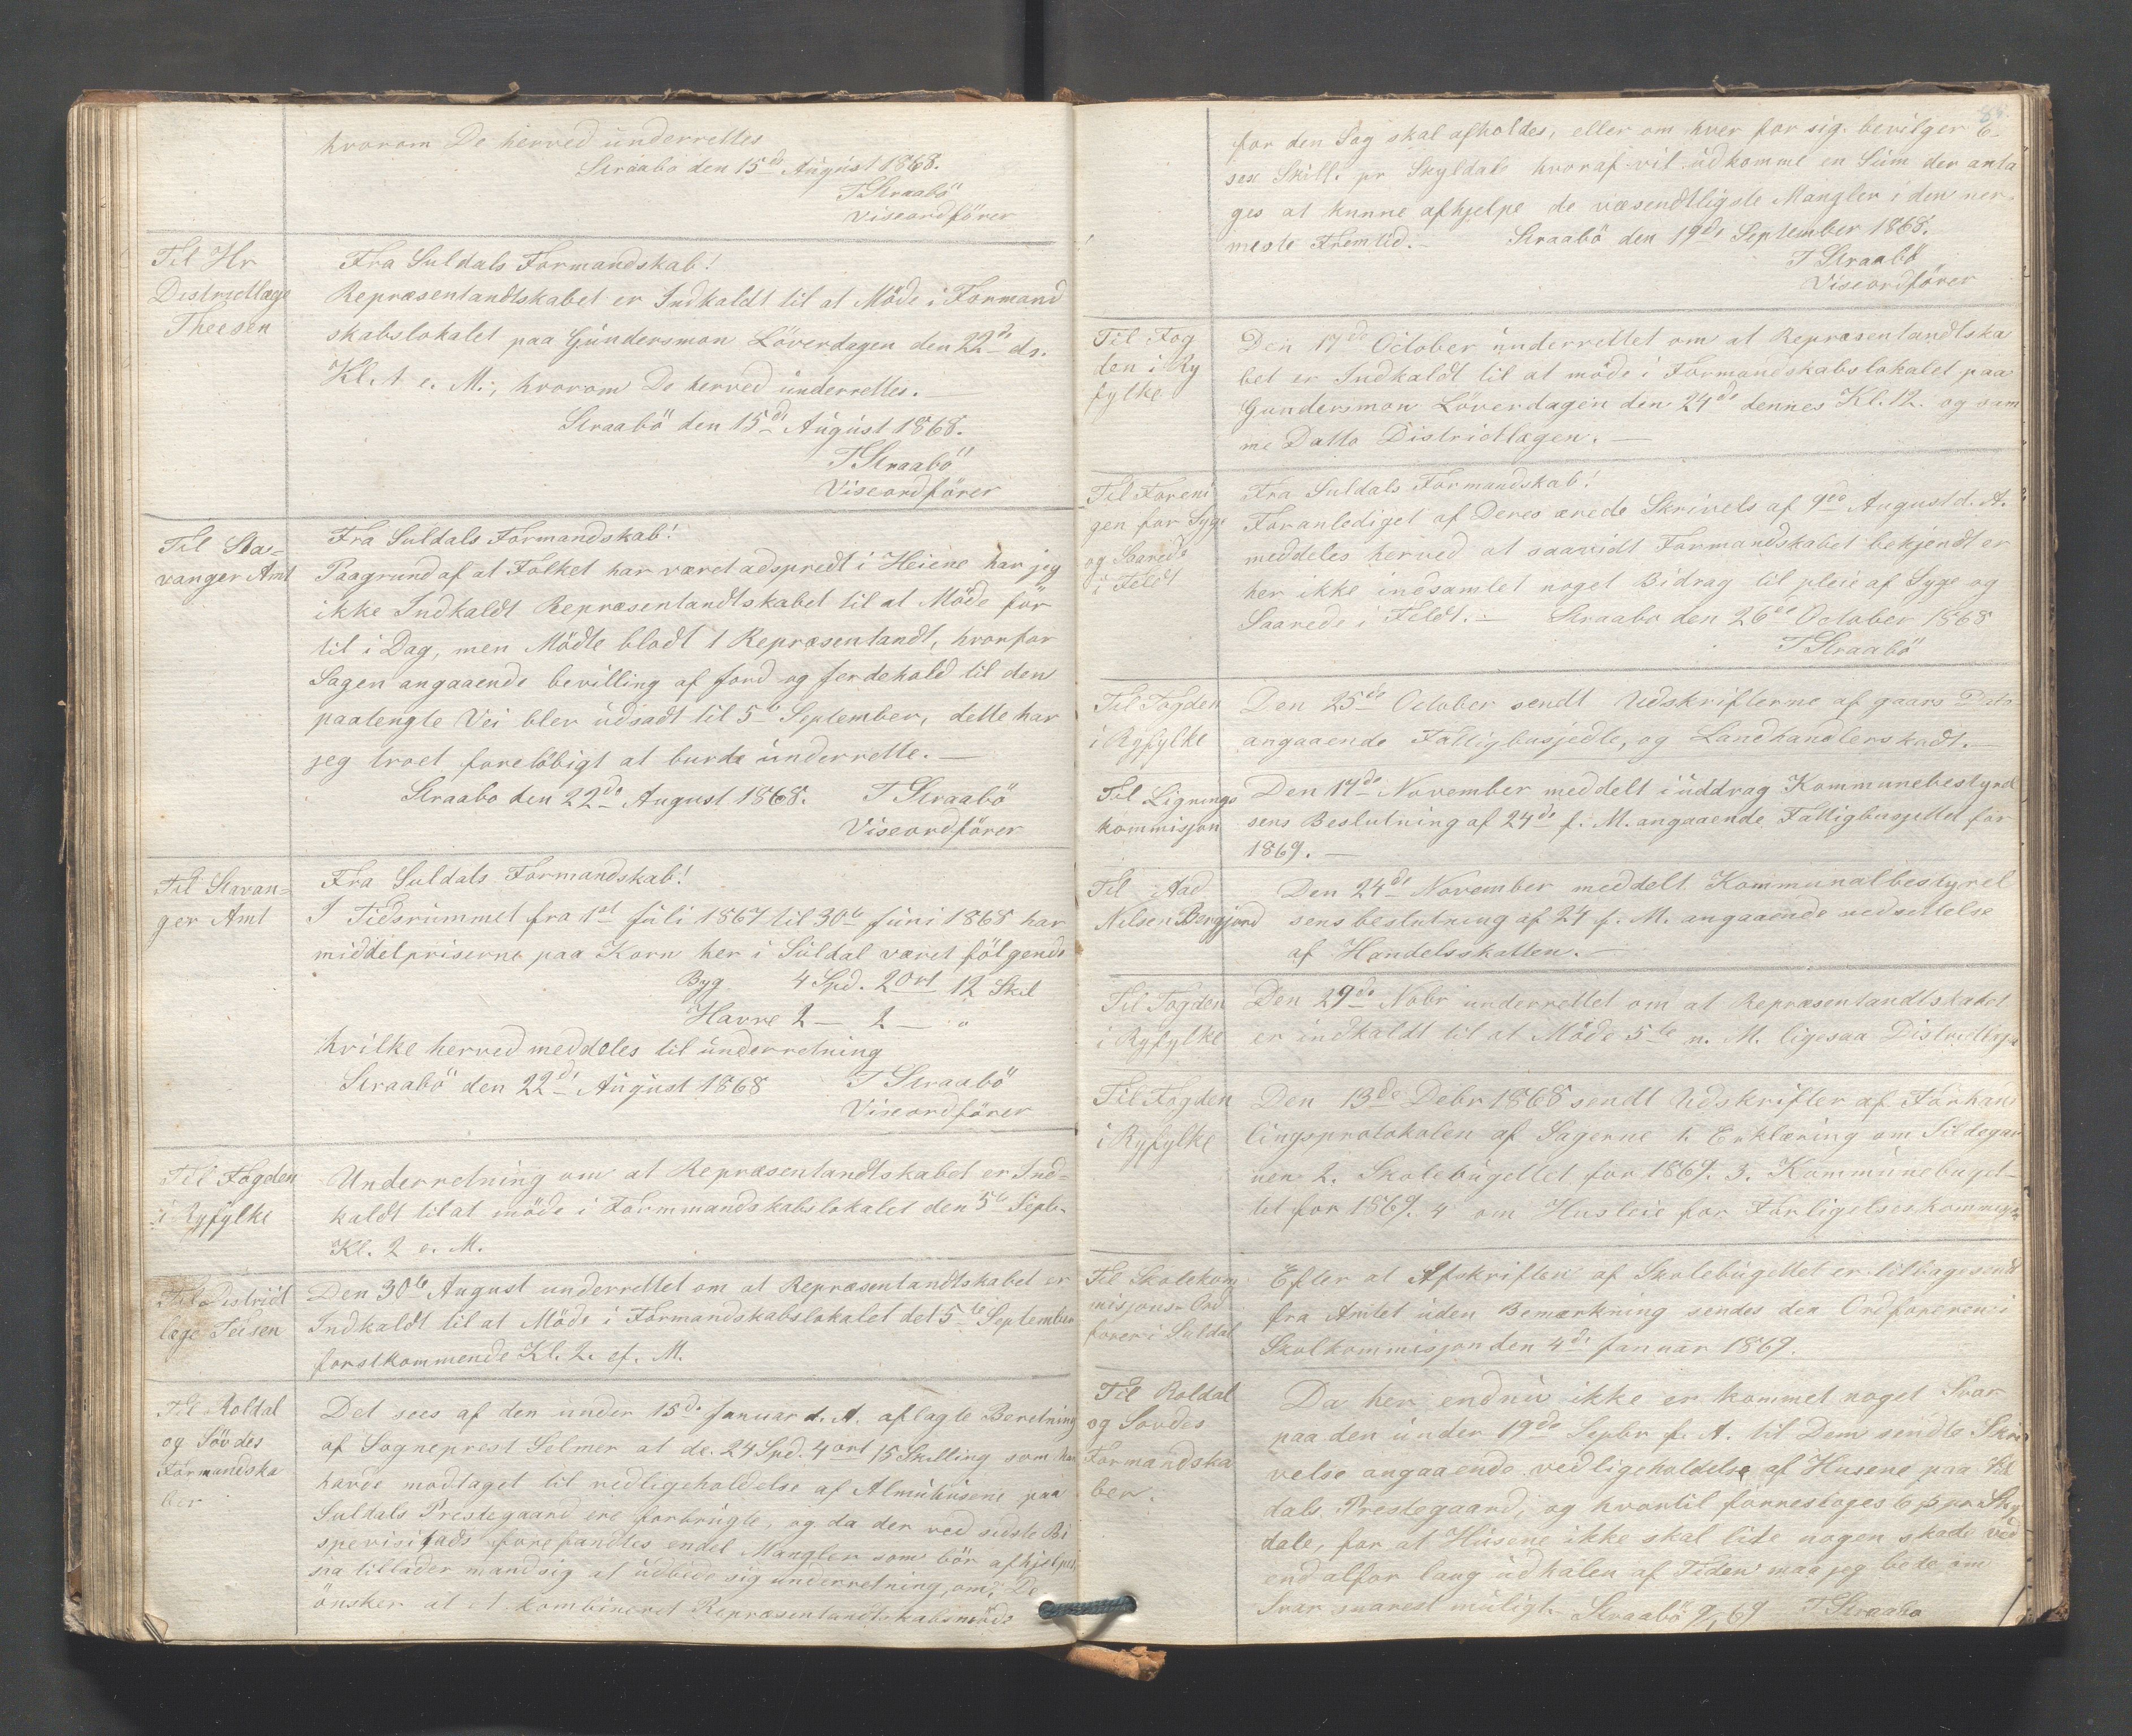 hvorom De herved underrettes
Straabø den 15de August 1868.
T Straabö
Viseordförer
Til Hr
Districtlæge
Theesen
Fra Suldals Formandskab!
Repræsentandtskabet er Indkaldt til at Möde i Formand
skabslokalet paa Gundersmon Löverdagen den 22de ds.
Kl. 1 e. M., hvorom De herved underrettes.
Straabö den 15de August 1868.
T Straabö
Viseordförer
Til Sta-
vanger Amt
Fra Suldals Formandskab!
Paagrund af at Folket har været adspredt i Heiene har jeg
ikke Indkaldt Repræsentandtskabet til at Möde för
til i Dag, men Mödte blodt 1 Repræsentandt, hvorfor
Sagen angaaende bevilling af ford og ferdehold til den
paatengte Vei bler udsadt til 5te September, dette har
jeg troet forelöbigt at burde underrette.
Straabo den 22de August 1868. T Straabö
Viseordförer
Til Stavan-
ger Amt
Fra Suldals Formandskab!
I Tidsrummet fra 1st Juli 1867 til 30te Juni 1868 har
middelpriserne paa Korn her i Suldal været fölgende
Byg 4 Spd. 2 Ort 12 Skil
Havre 2 — 2 — "
hvilke herved meddeles til underretning
Straabö den 22de August 1868 T Straabö
Viseordförer
Til Fogden
i Ryfylke
Underretning om at Repræsentandtskabet er Ind-
kaldt til at möde i Formmandskabslokalet den 5te Septbr
Kl. 2 e. M.
Til District
læge Teisen
Den 30te August underrettet om at Repræsentandtskabet er
Indkaldt til at Möde i Formandskabslokalet det 5te September
forstkommende Kl. 2. ef. M.
Til Roldal
og Sövdes
Formandska
ber
Det sees af den under 15de Januar d. A. aflagte Beretning
af Sogneprest Selmer at de 24 Spd. 4 ort 15 Skilling som han
havde modtaget til vedligeholdelse af Almuhusene paa
Suldals Prestegaard ere forbrugte, og da der ved sidste Bi
spevisitads forefandtes endel Mangler som bör afhjelpes,
saa tillader mand sig at udbede sig underretning, om De
önsker at et kombineret Repræsentandtskabsmöde
for den Sag skal afholdes, eller om hver for sig bevilger 6.
sex Skill. pr Skyldale hvoraf vil udkomme en Sum der anta
ges at kunne afhjelpe de væsendtligste Mangler i den ner
meste Fremtid. Straabö den 19de September 1868.
T Straabö
Viseordförer
Til Fog
den i Ry
fylke
Den 17de October underrettet om at Repræsentandtska
bet er Indkaldt til at möde i Formandskabslokalet paa
Gundersmon Löverdagen den 24de dennes Kl. 12. og sam
me Datto Districtlægen.
Til Foreni
gen for Syge
og Saarede
i Feldt
Fra Suldals Formandskab!
Foranlediget af Deres ærede Skrivels af 9de August d. A.
meddeles herved at saavidt Formandskabet bekjendt er
her ikke indsamlet noget Bidrag til pleie af Syge og
Saarede i Feldt. Straabo den 26de October 1868
T Straabö
Til Fogden
i Ryfylke
Den 25de October sendt Udskrifterne af gaars Dato
angaaende Fattigbusjedte, og Landhandlerskadt.
Til Lignings
kommisjon
Den 17de November meddelt i uddrag Kommunebestyrel
sens Beslutning af 24de f. M. angaaende Fattigbusjettet for
1869.
Til Aad
Nilsen Bergjord
Den 24de November meddelt Kommunalbestyrel
sens beslutning af 24 f. M. angaaende nedsettelse
af Handelsskatten.
Til Fogden
i Ryfylke
Den 29de Nobr underrettet om at Repræsentandtskabet
er indkaldt til at Möde 5te n. M. ligesaa Districtlæja
Til Fogden
i Ryfylke
Den 13de Debr 1868 sendt Udskrifter af Forhand
lingsprotokolen af Sagerne 1. Erklæring om Sildegar
nen 2. Skolebugettet for 1869. 3. Kommunebuget-
tet for 1869. 4 om Husleie for Forligelseskommisjo
Til Skolekom
misjons Ord
forer i Suldal
Efter at Afskriften af Skolebugettet er tilbagesendt
fra Amtet uden Bemærkning sendes den Ordforeren i
Skolkommisjon den 4de Januar 1869.
Til Roldal
og Sovdes
Formandska
ber.
Da her endnu ikke er kommet noget Svar
paa den under 19de Sepbr f. A. til Dem sendte Skri
velse angaaende vedligeholdelse af Husene paa Sul
dals Prestegaard, og hvortil foresloges 6 ß pr Sky
dale, for at Husene ikke skal lide nogen skade ved
end alfor lang udhalen af Tiden maa jeg bede om
Svar snarest muligt. Straabö 9/1 69 T Straabo